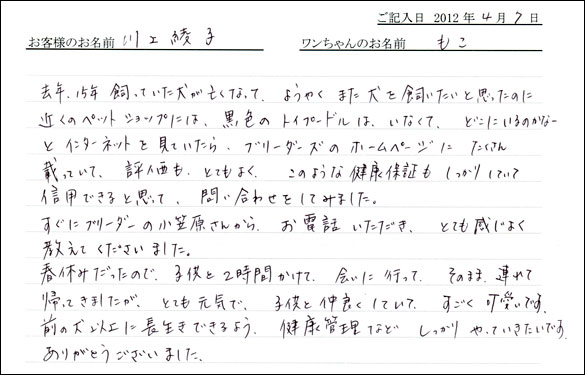 ご記入日 2012年4月7日
お客様のお名前 川上 綾子 ワンちゃんのお名前 もこ
去年、15年 飼っていた犬が亡くなって、ようやく また 犬を飼いたいと思ったのに
近くのペットショップには、黒色の トイプードルは、いなくて、どこにいるのかなー
と インターネットを見ていたら、ブリーダーズの ホームページに たくさん
載っていて、評価も、とてもよく、このような健康保証も しっかりしていて
信用できると思って、問い合わせをしてみました。
すぐにブリーダーの小笠原さんから、お電話いただき、とても感じよく
教えてくださいました。
春休みだったので、子供と 2時間かけて、会いに行って、そのまま、連れて
帰ってきましたが、とても元気で、子供と仲良くしていて、すごく可愛いです。
前の犬以上に長生きできるよう、健康管理など しっかり やっていきたいです。
ありがとうございました。